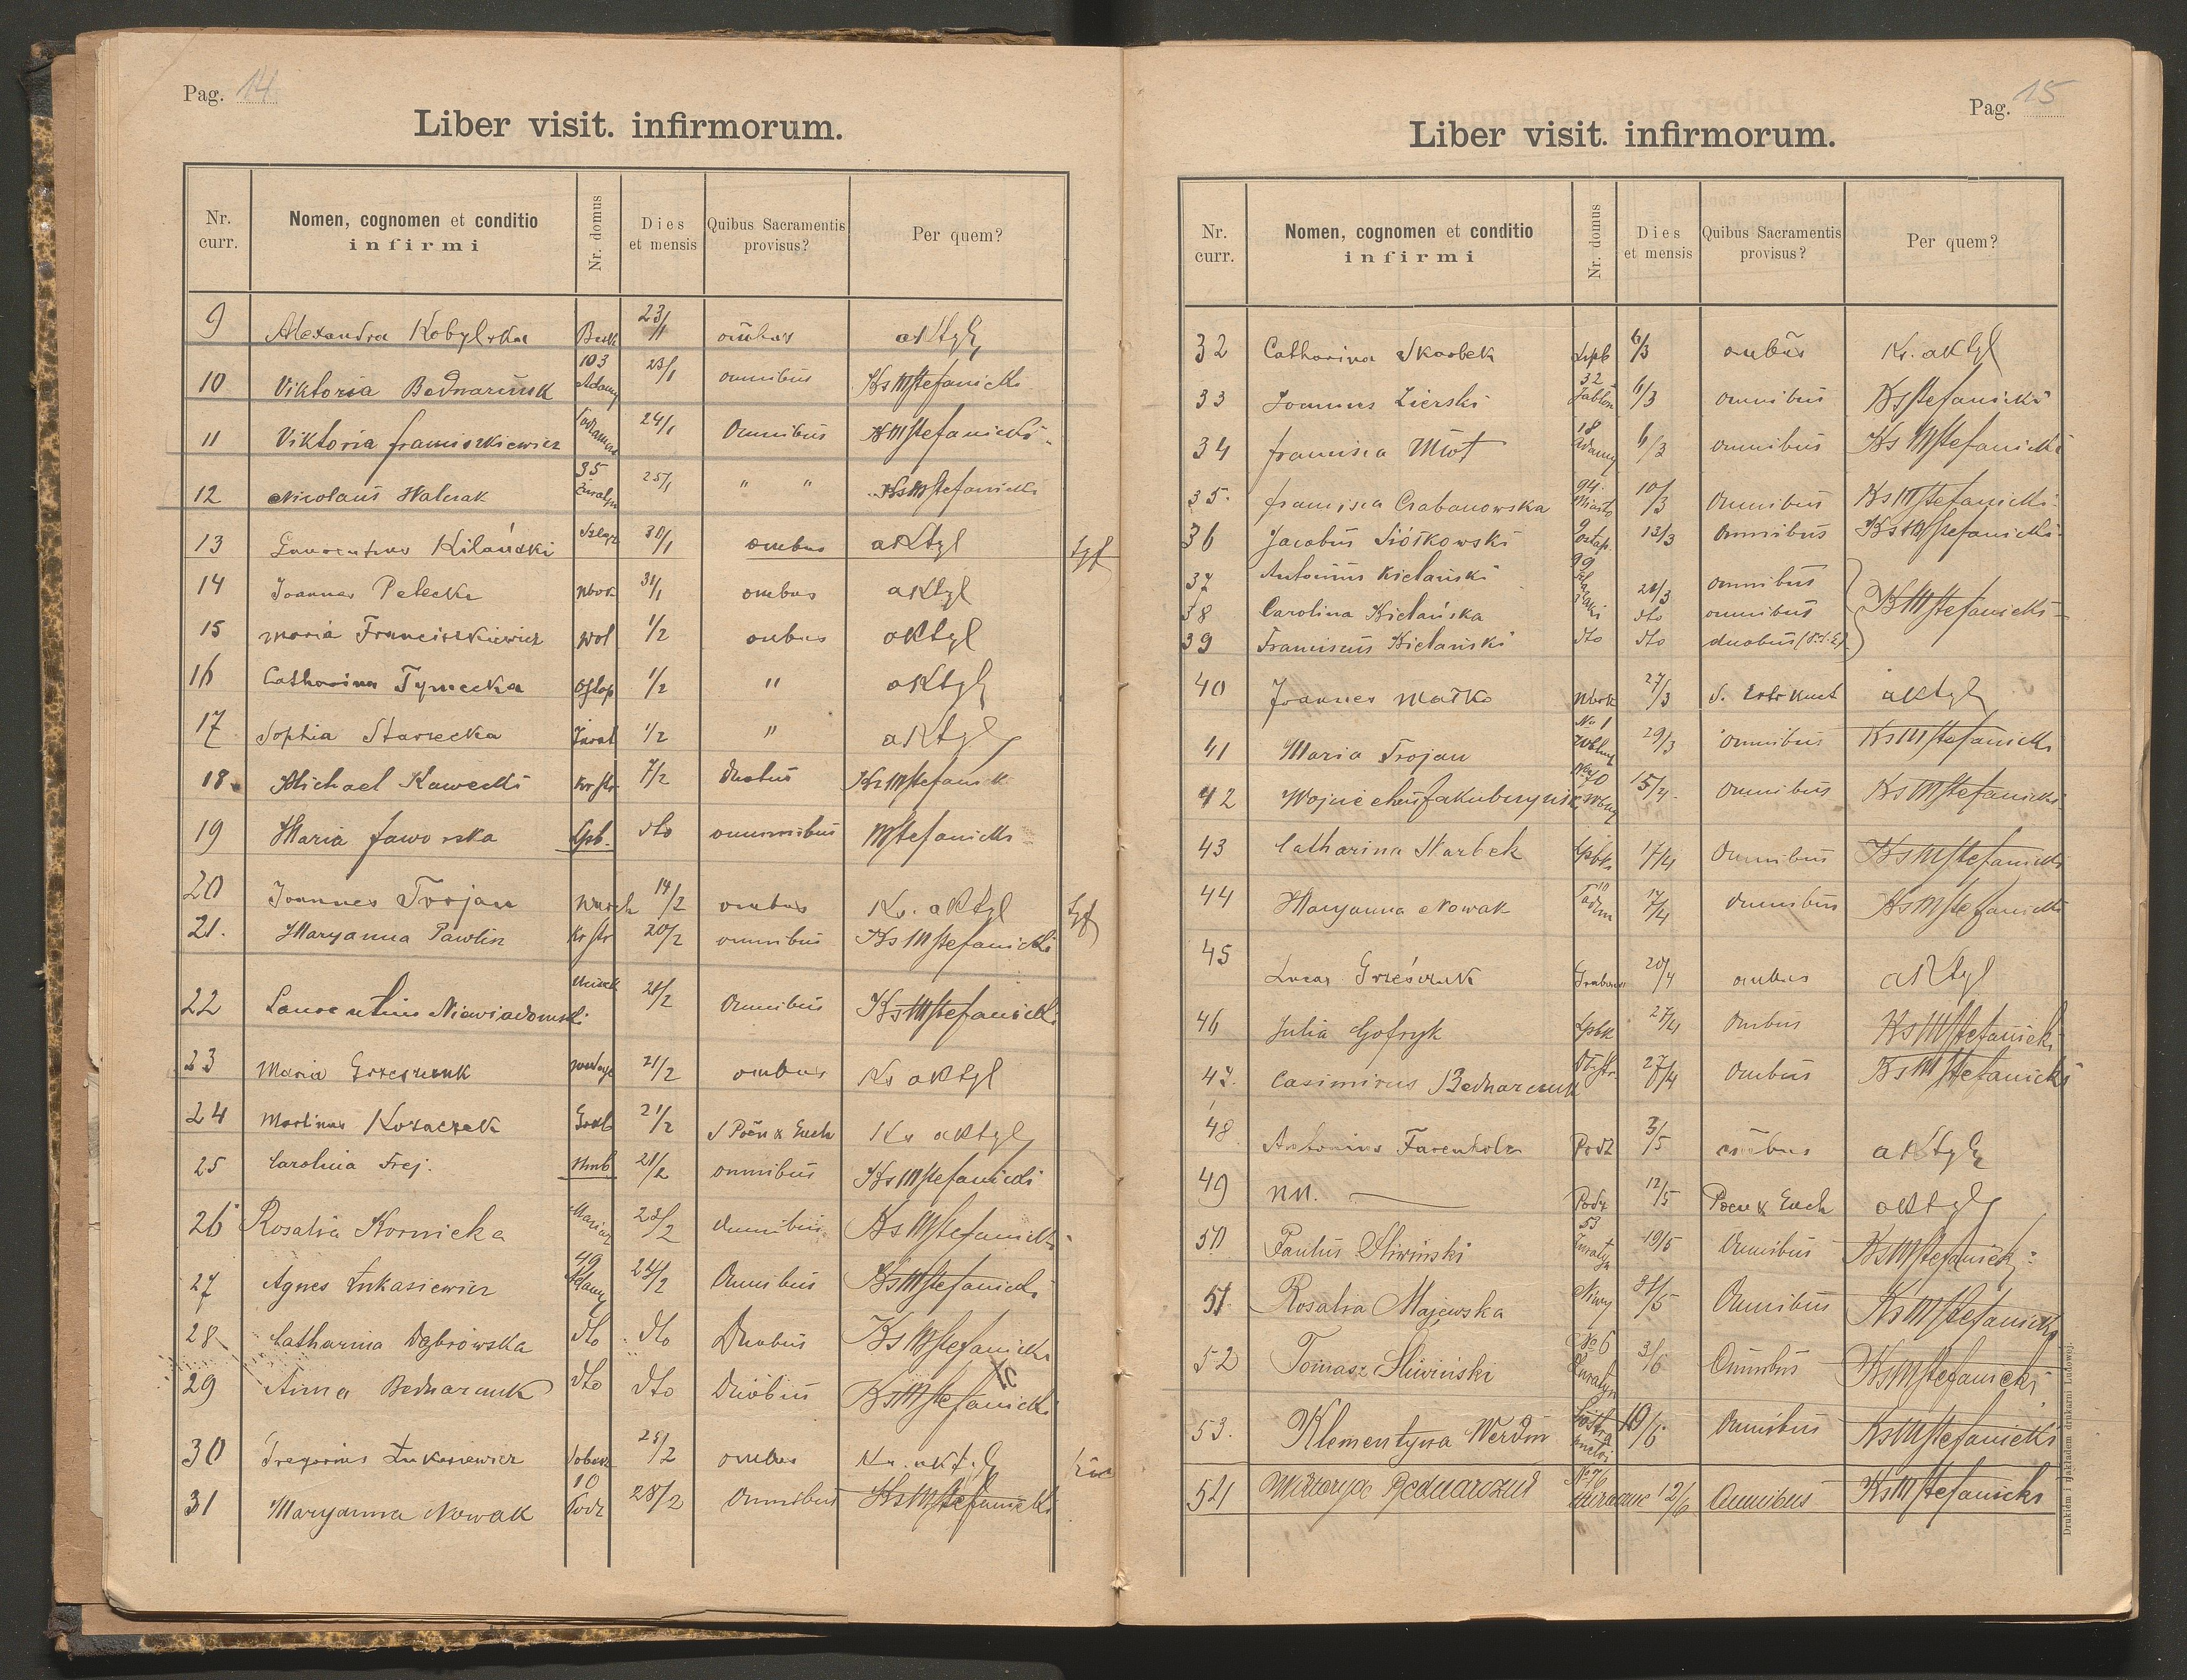 Pag. 14
Liber visit. infirmorum.
Nr. curr. Nomen, cognomen et conditio infirmi Nr. domus Dies et mensis Quibus Sacramentis provisus? Per quem?
9 Alexandra Kobylska Busk 23/1 ombus aktyl
10 Viktoria Bednarczuk 103 Adamy 23/1 omnibus Ks MStefanicki
11 Viktoria Franciszkiewicz 24/1 Omnibus Ks MStefanicki
12 Nicolaus Walczak 35 Żuratyn 25/1 " " Ks MStefanicki
13 Laurentius Kilański 30/1 ombus aktyl
14 Joannes Pelecki Nbok 31/1 ombus aktyl
15 Maria Franciszkiewicz Wol 1/2 ombus aktyl
16 Catharina Tymecka Ostap 1/2 " aktyl
17 Sophia Starzecka Żurat 1/2 " aktyl
18. Michael Kawecki Kr str 7/2 duobus Ks MStefanicki
19 Maria Jaworska Lpb. dto omnibus MStefanicki
20 Joannes Trojan 14/2 ombus Ks. aktyl
21. Maryanna Pawlin Kr str 20/2 omnibus Ks MStefanicki
22 Laurentius Niewiadomski 21/2 Omnibus Ks MStefanicki
23 Maria Grzeszczuk 21/2 ombus Ks aktyl
24 Martinus Kozaczek 21/2 S Poen & Euch Ks aktyl
25 Carolina Frej. 21/2 omnibus Ks MStefanicki
26 Rosalia Kornicka 23/2 omnibus Ks MStefanicki
27 Agnes Łukasiewicz 49 Adamy 24/2 Omnibus Ks MStefanicki
28 Catharina Dąbrowska dto dto Duobus Ks MStefanicki
29 Anna Bednarczuk dto dto Duobus Ks MStefanicki
30 Gregorius Łukasiewicz 25/2 ombus Ks. aktyl
31 Maryanna Nowak 10 Podz 28/2 Omnibus Ks MStefanicki
Pag. 15
Liber visit. infirmorum.
Nr. curr. Nomen, cognomen et conditio infirmi Nr. domus Dies et mensis Quibus Sacramentis provisus? Per quem?
32 Catharina Skarbek Lipb 6/3 ombus Ks. aktyl
33 Joannes Zierski 32 Jabłon 6/3 omnibus Ks Stefanicki
34 Francisca Młot 18 Adamy 6/3 omnibus Ks MStefanicki
35. Francisca Czabanowska 94. Miasto 10/3 Omnibus Ks MStefanicki
36 Jacobus Siółkowski 9 Ostap. 13/3 Omnibus Ks MStefanicki
37 Antonius Kielański 99 28/3 omnibus Ks MStefanicki
38 Carolina Kielańska dto omnibus
39 Franciscus Kielański dto dto duobus
40 Joannes Matko Nbok 27/3 aktyl
41 Maria Trojan No 1 29/3 omnibus Ks MStefanicki
42 70 15/4. omnibus Ks MStefanicki
43 Catharina Skarbek Lpbk 17/4 Omnibus Ks MStefanicki
44 Maryanna Nowak 10 17/4 Omnibus Ks MStefanicki
45 Lucas Grześczuk 20/4 ombus aktyl
46 Julia Gofryk Lpbk 27/4 Ombus Ks MStefanicki
47. Casimirus Bednarczuk 27/4 Ombus Ks MStefanicki
48. Antonius Farenholz Podz 3/5 ombus aktyl
49 NN. Podz 12/5 Poen & Euch aktyl
50 Paulus Śliwiński 53 Żuratyn 19/5 Omnibus Ks MStefanicki
51. Rosalia Majewska Niwy 31/5 Omnibus Ks MStefanicki
52 Tomasz Śliwiński No 6 Żuratyn 3/6 Omnibus Ks MStefanicki
53. Klementyna Werdin 10/6 Omnibus Ks MStefanicki
54 Wiktorya Bednarczuk 12/6 Omnibus Ks MStefanicki
Drukiem i nakładem drukarni Ludowej.